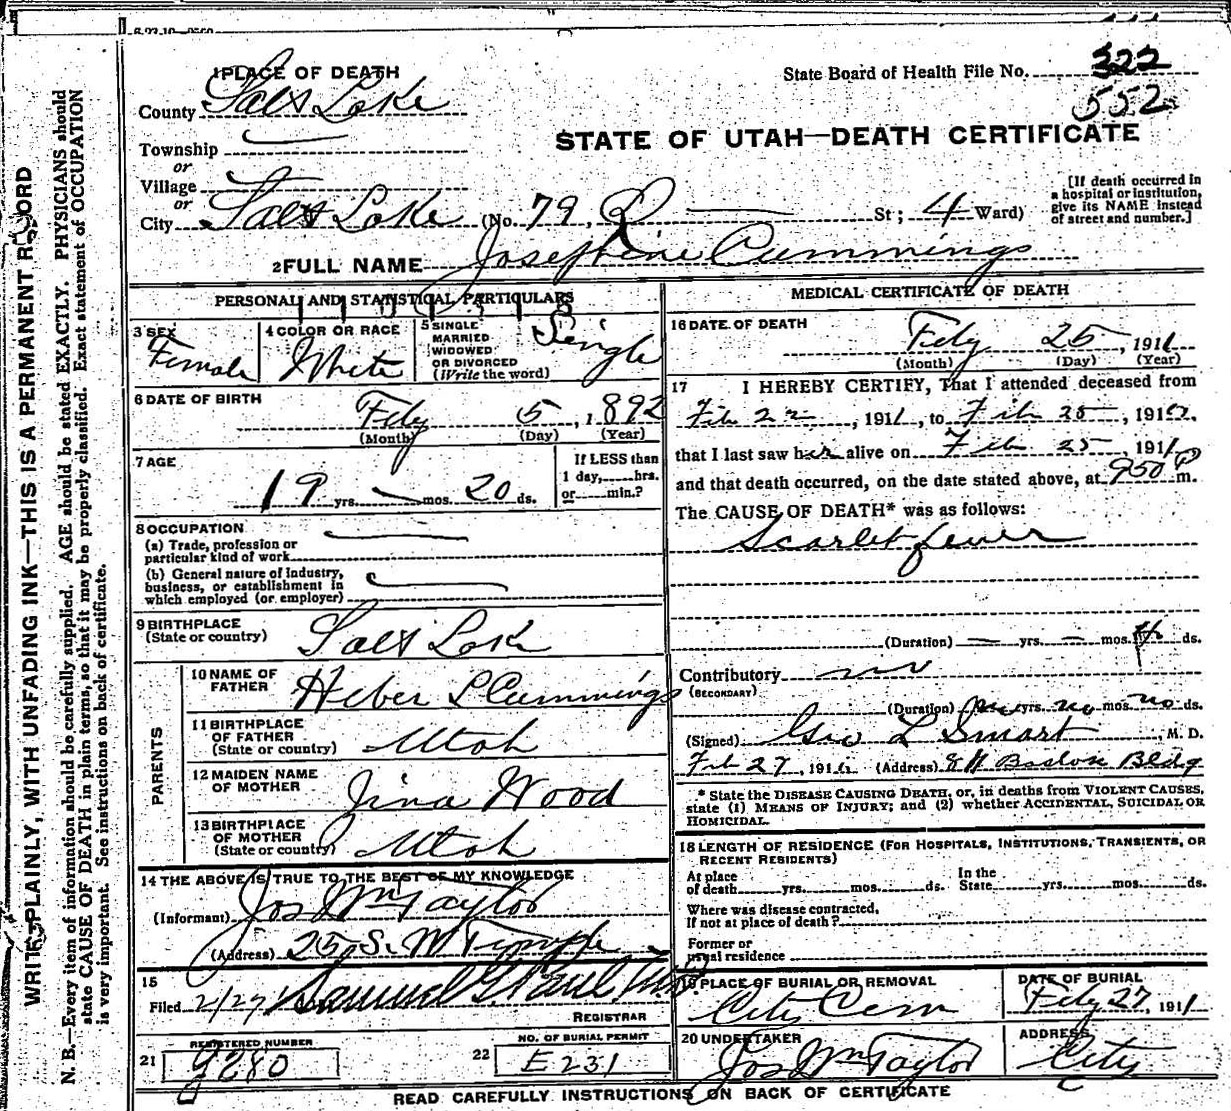 6-27-10—
1 PLACE OF DEATH
State Board of Health File No. 322
552
County Salt Lake
STATE OF UTAH—DEATH CERTIFICATE
Township
or
Village
or
City Salt Lake (No. 79, Q St; 4 Ward)
[If death occurred in a hospital or institution, give its NAME instead of street and number.]
2 FULL NAME Josephine Cummings
PERSONAL AND STATISTICAL PARTICULARS
3 SEX Female
4 COLOR OR RACE White
5 SINGLE MARRIED WIDOWED OR DIVORCED (Write the word) Single
6 DATE OF BIRTH Feby 5, 1892
(Month) (Day) (Year)
7 AGE 19 yrs. — mos. 20 ds.
If LESS than 1 day, hrs. or min.?
8 OCCUPATION
(a) Trade, profession or particular kind of work
(b) General nature of industry, business, or establishment in which employed (or employer)
9 BIRTHPLACE (State or country) Salt Lake
PARENTS
10 NAME OF FATHER Heber L Cummings
11 BIRTHPLACE OF FATHER (State or country) Utah
12 MAIDEN NAME OF MOTHER Wood
13 BIRTHPLACE OF MOTHER (State or country) Utah
14 THE ABOVE IS TRUE TO THE BEST OF MY KNOWLEDGE
(Informant) Jos Wm Taylor
(Address) 25 S. W Temple
15
Filed 2/27 Samuel G. Paul M.D.
REGISTRAR
21 REGISTERED NUMBER 9280
22 NO. OF BURIAL PERMIT E231
MEDICAL CERTIFICATE OF DEATH
16 DATE OF DEATH Feby 25, 1911
(Month) (Day) (Year)
17 I HEREBY CERTIFY, That I attended deceased from
Feb 22, 1911, to Feb 25, 191
that I last saw her alive on Feb 25, 1911
and that death occurred, on the date stated above, at 950 P m.
The CAUSE OF DEATH* was as follows:
Scarlet fever
(Duration) — yrs. — mos. 4 ds.
Contributory no
(SECONDARY)
(Duration) no yrs. no mos. no ds.
(Signed) Geo L Smart, M. D.
Feb 27, 191 (Address) Boston Bldg
* State the DISEASE CAUSING DEATH, or, in deaths from VIOLENT CAUSES, state (1) MEANS OF INJURY; and (2) whether ACCIDENTAL, SUICIDAL OR HOMICIDAL.
18 LENGTH OF RESIDENCE (FOR HOSPITALS, INSTITUTIONS, TRANSIENTS, OR RECENT RESIDENTS)
At place of death yrs. mos. ds. In the State yrs. mos. ds.
Where was disease contracted, If not at place of death?
Former or usual residence
19 PLACE OF BURIAL OR REMOVAL City Cem
DATE OF BURIAL Feby 27, 1911
20 UNDERTAKER Jos Wm Taylor
ADDRESS City
READ CAREFULLY INSTRUCTIONS ON BACK OF CERTIFICATE
WRITE PLAINLY, WITH UNFADING INK—THIS IS A PERMANENT RECORD
N. B.—Every item of information should be carefully supplied. AGE should be stated EXACTLY. PHYSICIANS should
state CAUSE OF DEATH in plain terms, so that it may be properly classified. Exact statement of OCCUPATION
is very important. See instructions on back of certificate.